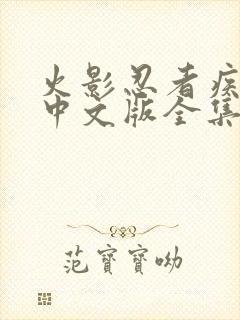 火影忍者疾
中文版全集
范寶寶呦